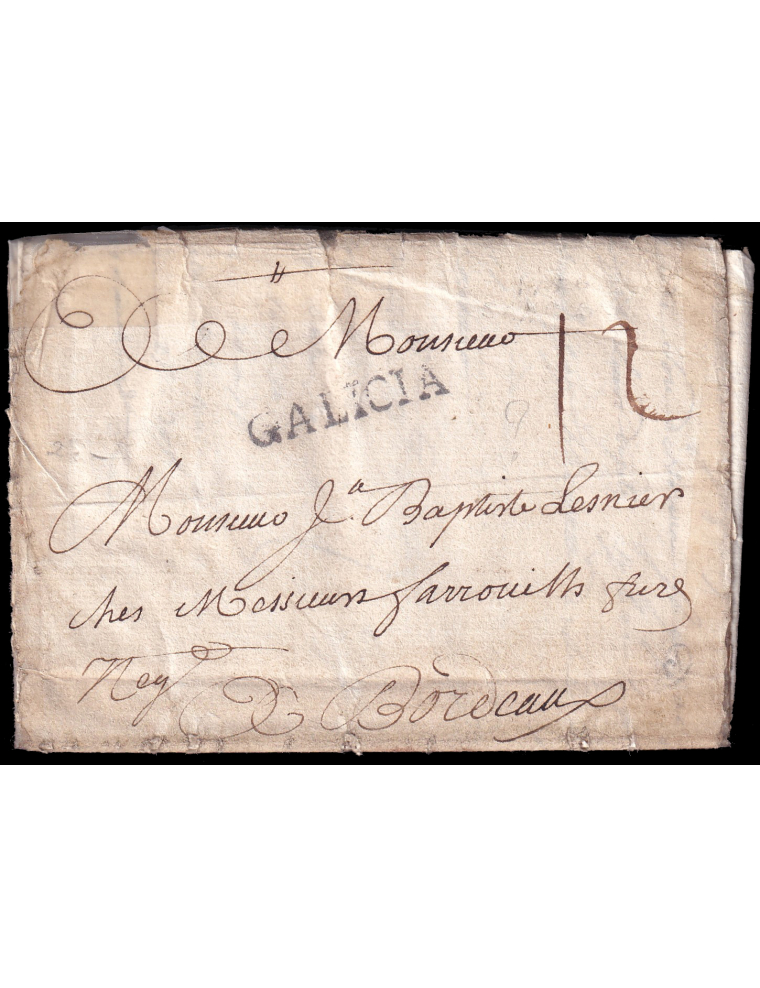 A Monsieur
12
GALICIA
Monsieur Jn Baptiste Lesnier
ches Messieurs freres
Negts
A Bordeaux